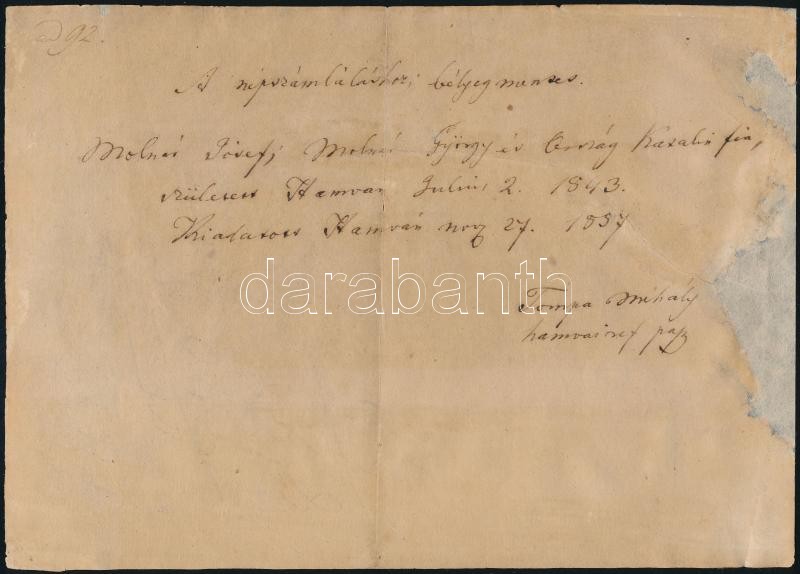 92.
A népszámláláshoz; bélyegmentes.
Molnár Jósef; Molnár György és Ország Katalin fia,
született Hamván Julius 2. 1843.
Kiadatott Hamván nov 27. 1857
darabanth
Tompa Mihály
hamvai ref pap